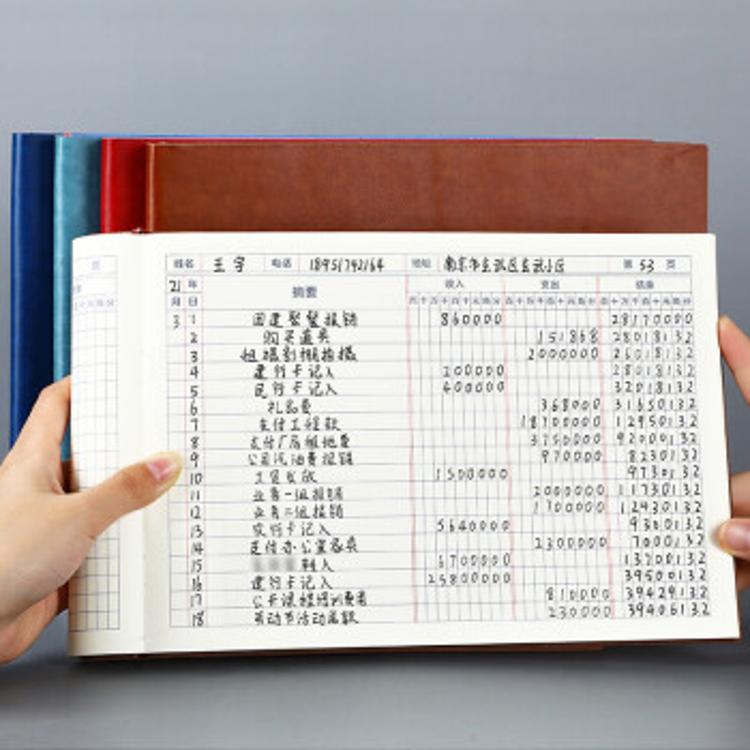 姓名 王宇 电话 18951742164 地址 南京市玄武区玄武小区 第 53 页
21 年 摘要 收入 支出 结余
月 日
3 1 团建聚餐报销 860000 28170000
2 购买道具 151868 28018132
3 组摄影棚拍摄 2000000 26018132
4 建行卡记入 200000 28018132
5 民行卡记入 400000 32018132
6 礼品费 368000 31650132
7 支付工程款 18700000 12950132
8 支付厂房租地费 3750000 9200132
9 公司汽油费报销 970000 8230132
10 1500000 9730132
11 业务一组报销 2000000 11730132
12 业务二组报销 1700000 12430132
13 农行卡记入 5640000 9300132
14 支付办公室家具 2300000 7000132
15 转入 6700000 13700132
16 建行卡记入 25800000 39500132
17 公开课程培训费用 810000 39429132
18 劳动节活动 230000 39406132